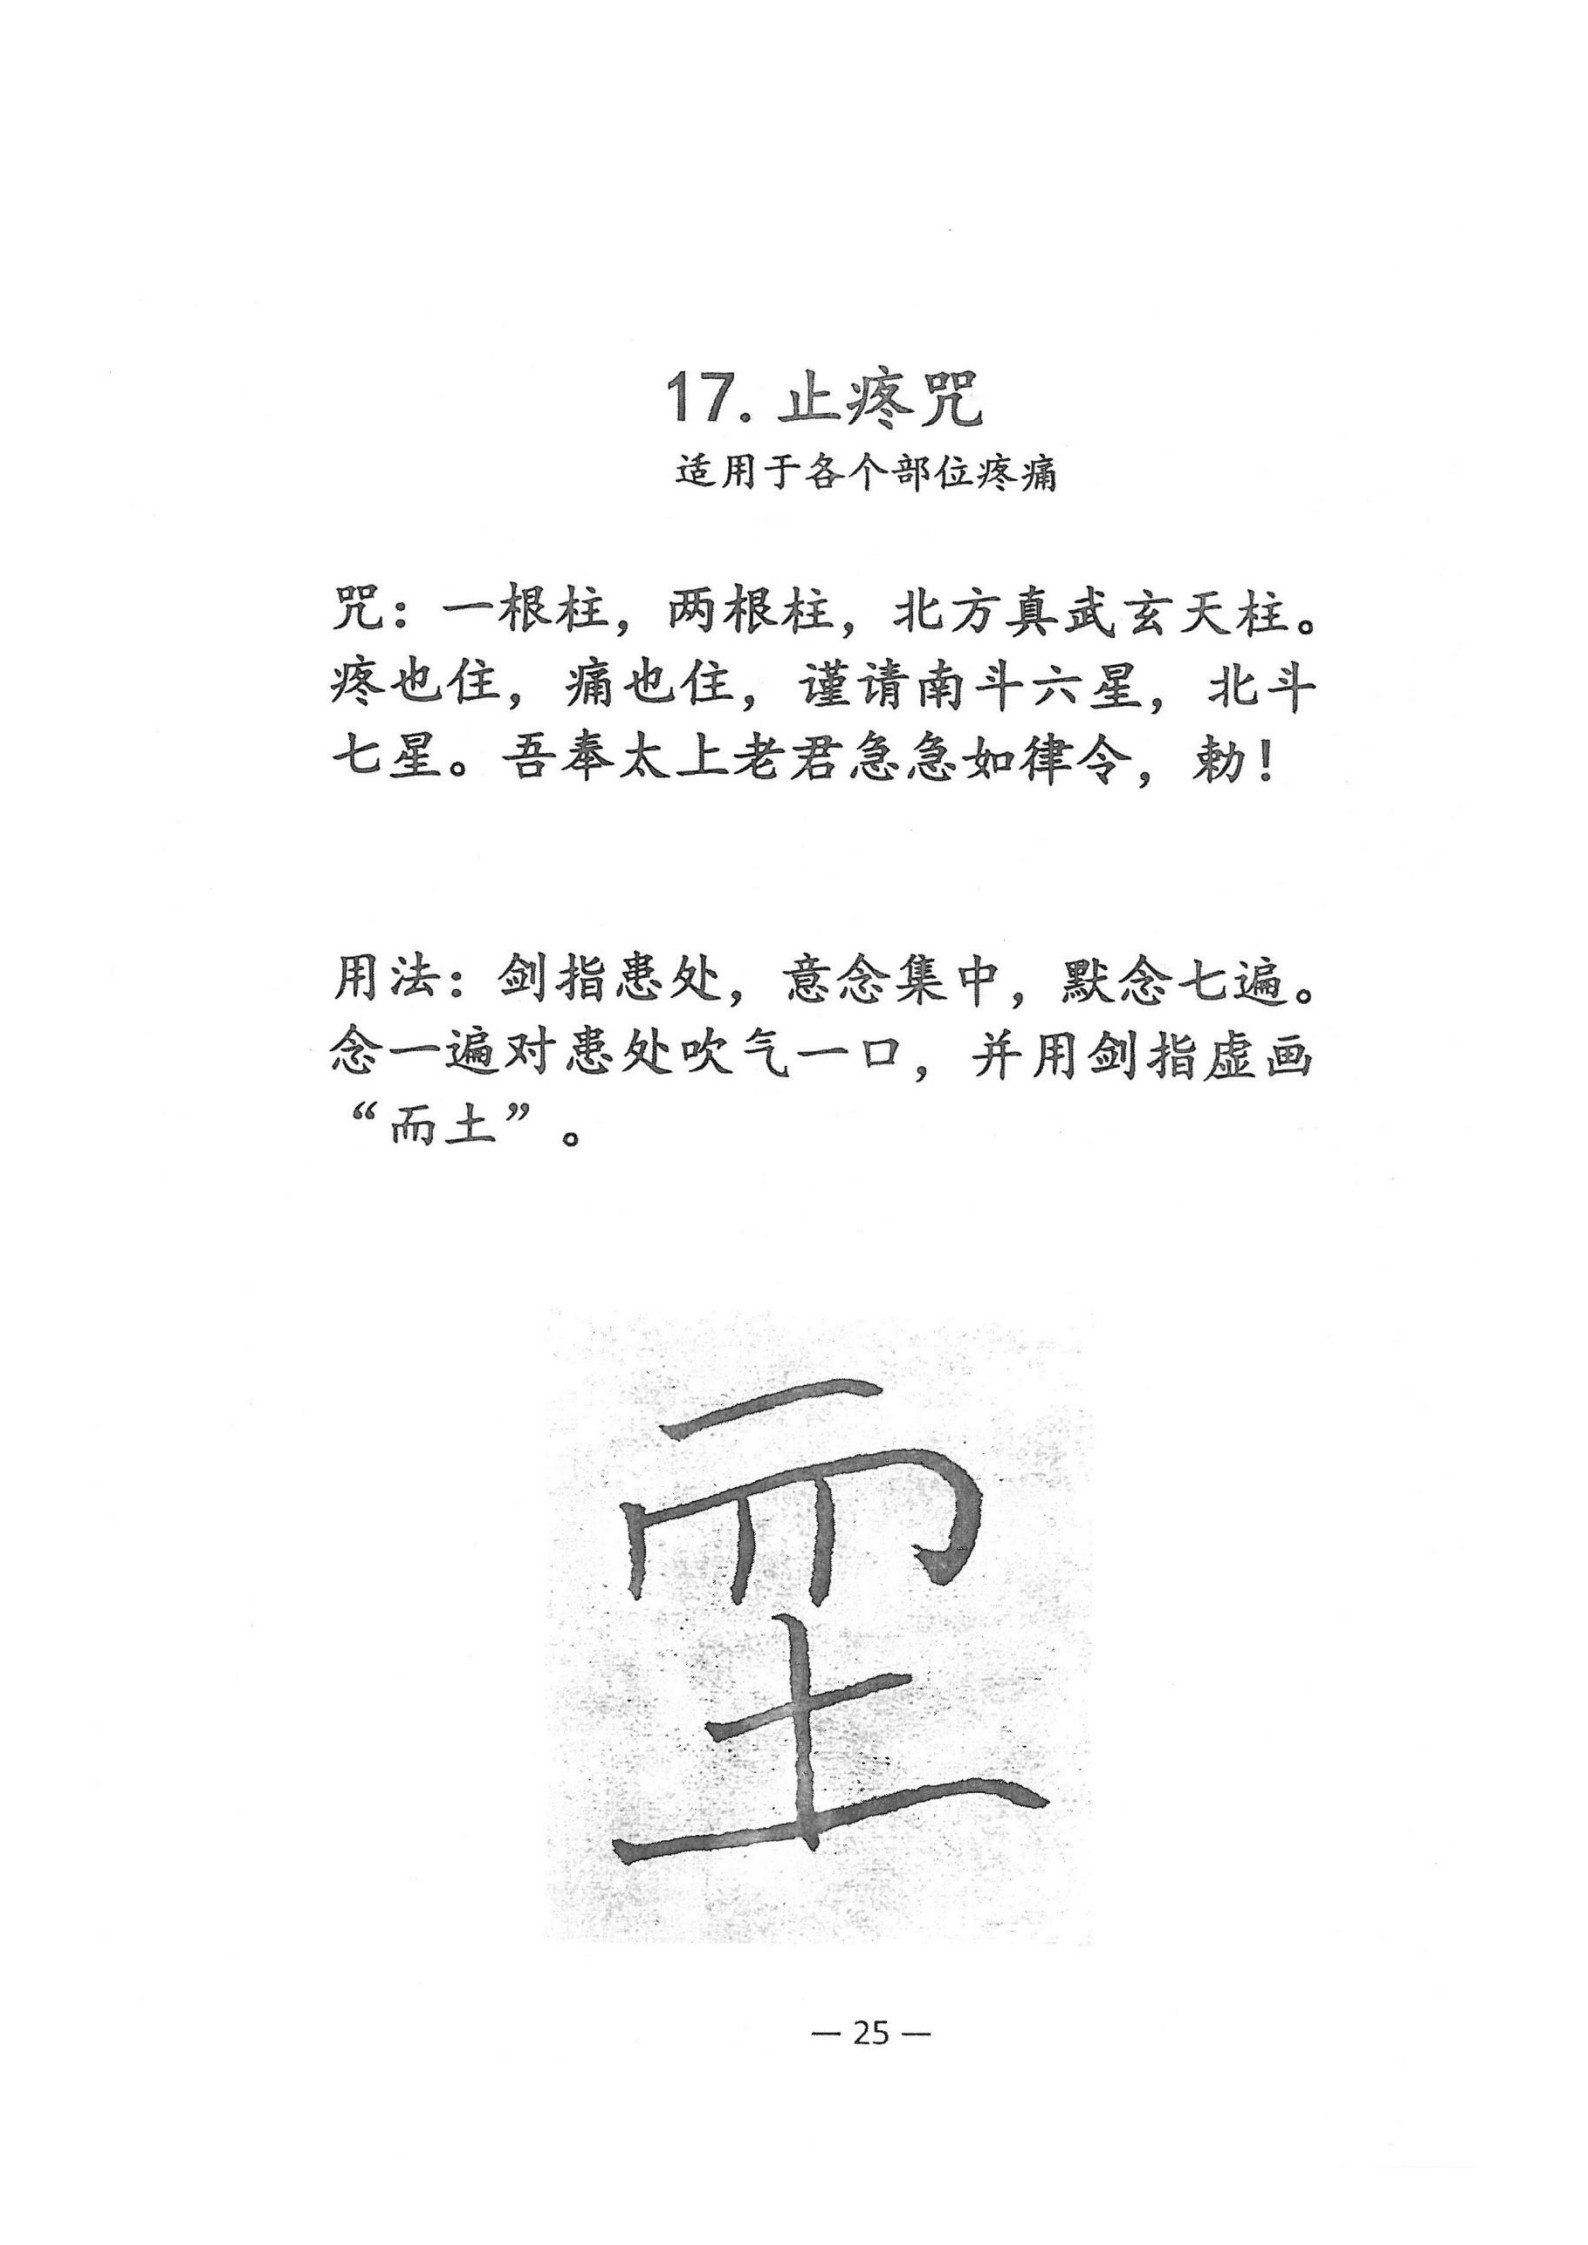 17. 止疼咒
适用于各个部位疼痛
咒：一根柱，两根柱，北方真武玄天柱。
疼也住，痛也住，谨请南斗六星，北斗
七星。吾奉太上老君急急如律令，勅！
用法：剑指患处，意念集中，默念七遍。
念一遍对患处吹气一口，并用剑指虚画
“而土”。
而
土
— 25 —